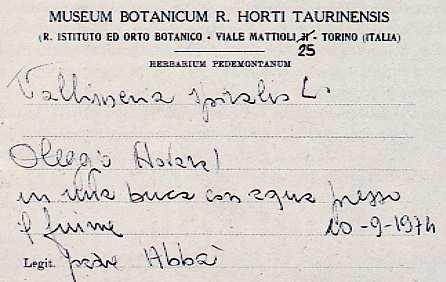 MUSEUM BOTANICUM R. HORTI TAURINENSIS
(R. ISTITUTO ED ORTO BOTANICO - VIALE MATTIOLI, 25 - TORINO (ITALIA)
HERBARIUM PEDEMONTANUM
Vallisneria spiralis L.
Oleggio
in una buca con acqua presso
il fiume 10-9-1974
Legit. padre Abbà